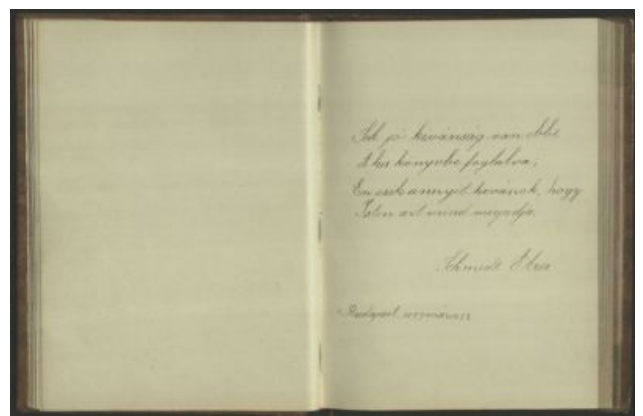 Sok jó kivánság van ebbe
A kis könyvbe foglalva;
Én csak annyit kivánok, hogy
Isten azt mind megadja.
Schmidt
Budapest